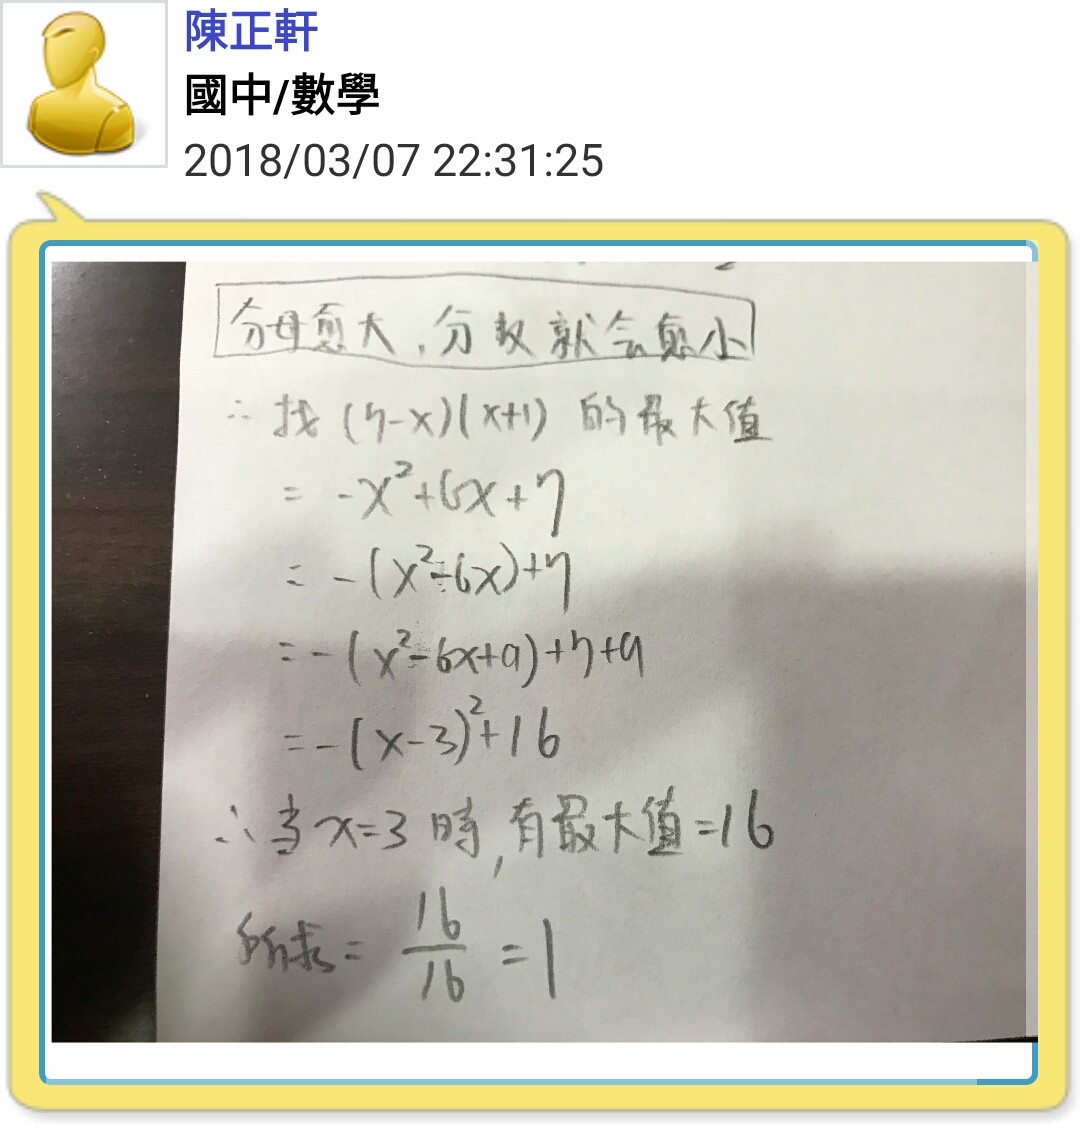 陳正軒
國中/數學
2018/03/07 22:31:25
分母愈大,分数就会愈小
∴找(7-x)(x+1)的最大值
= -x²+6x+7
= -(x²-6x)+7
= -(x²-6x+9)+7+9
= -(x-3)²+16
∴当x=3時,有最大值=16
所求= 16/16 =1